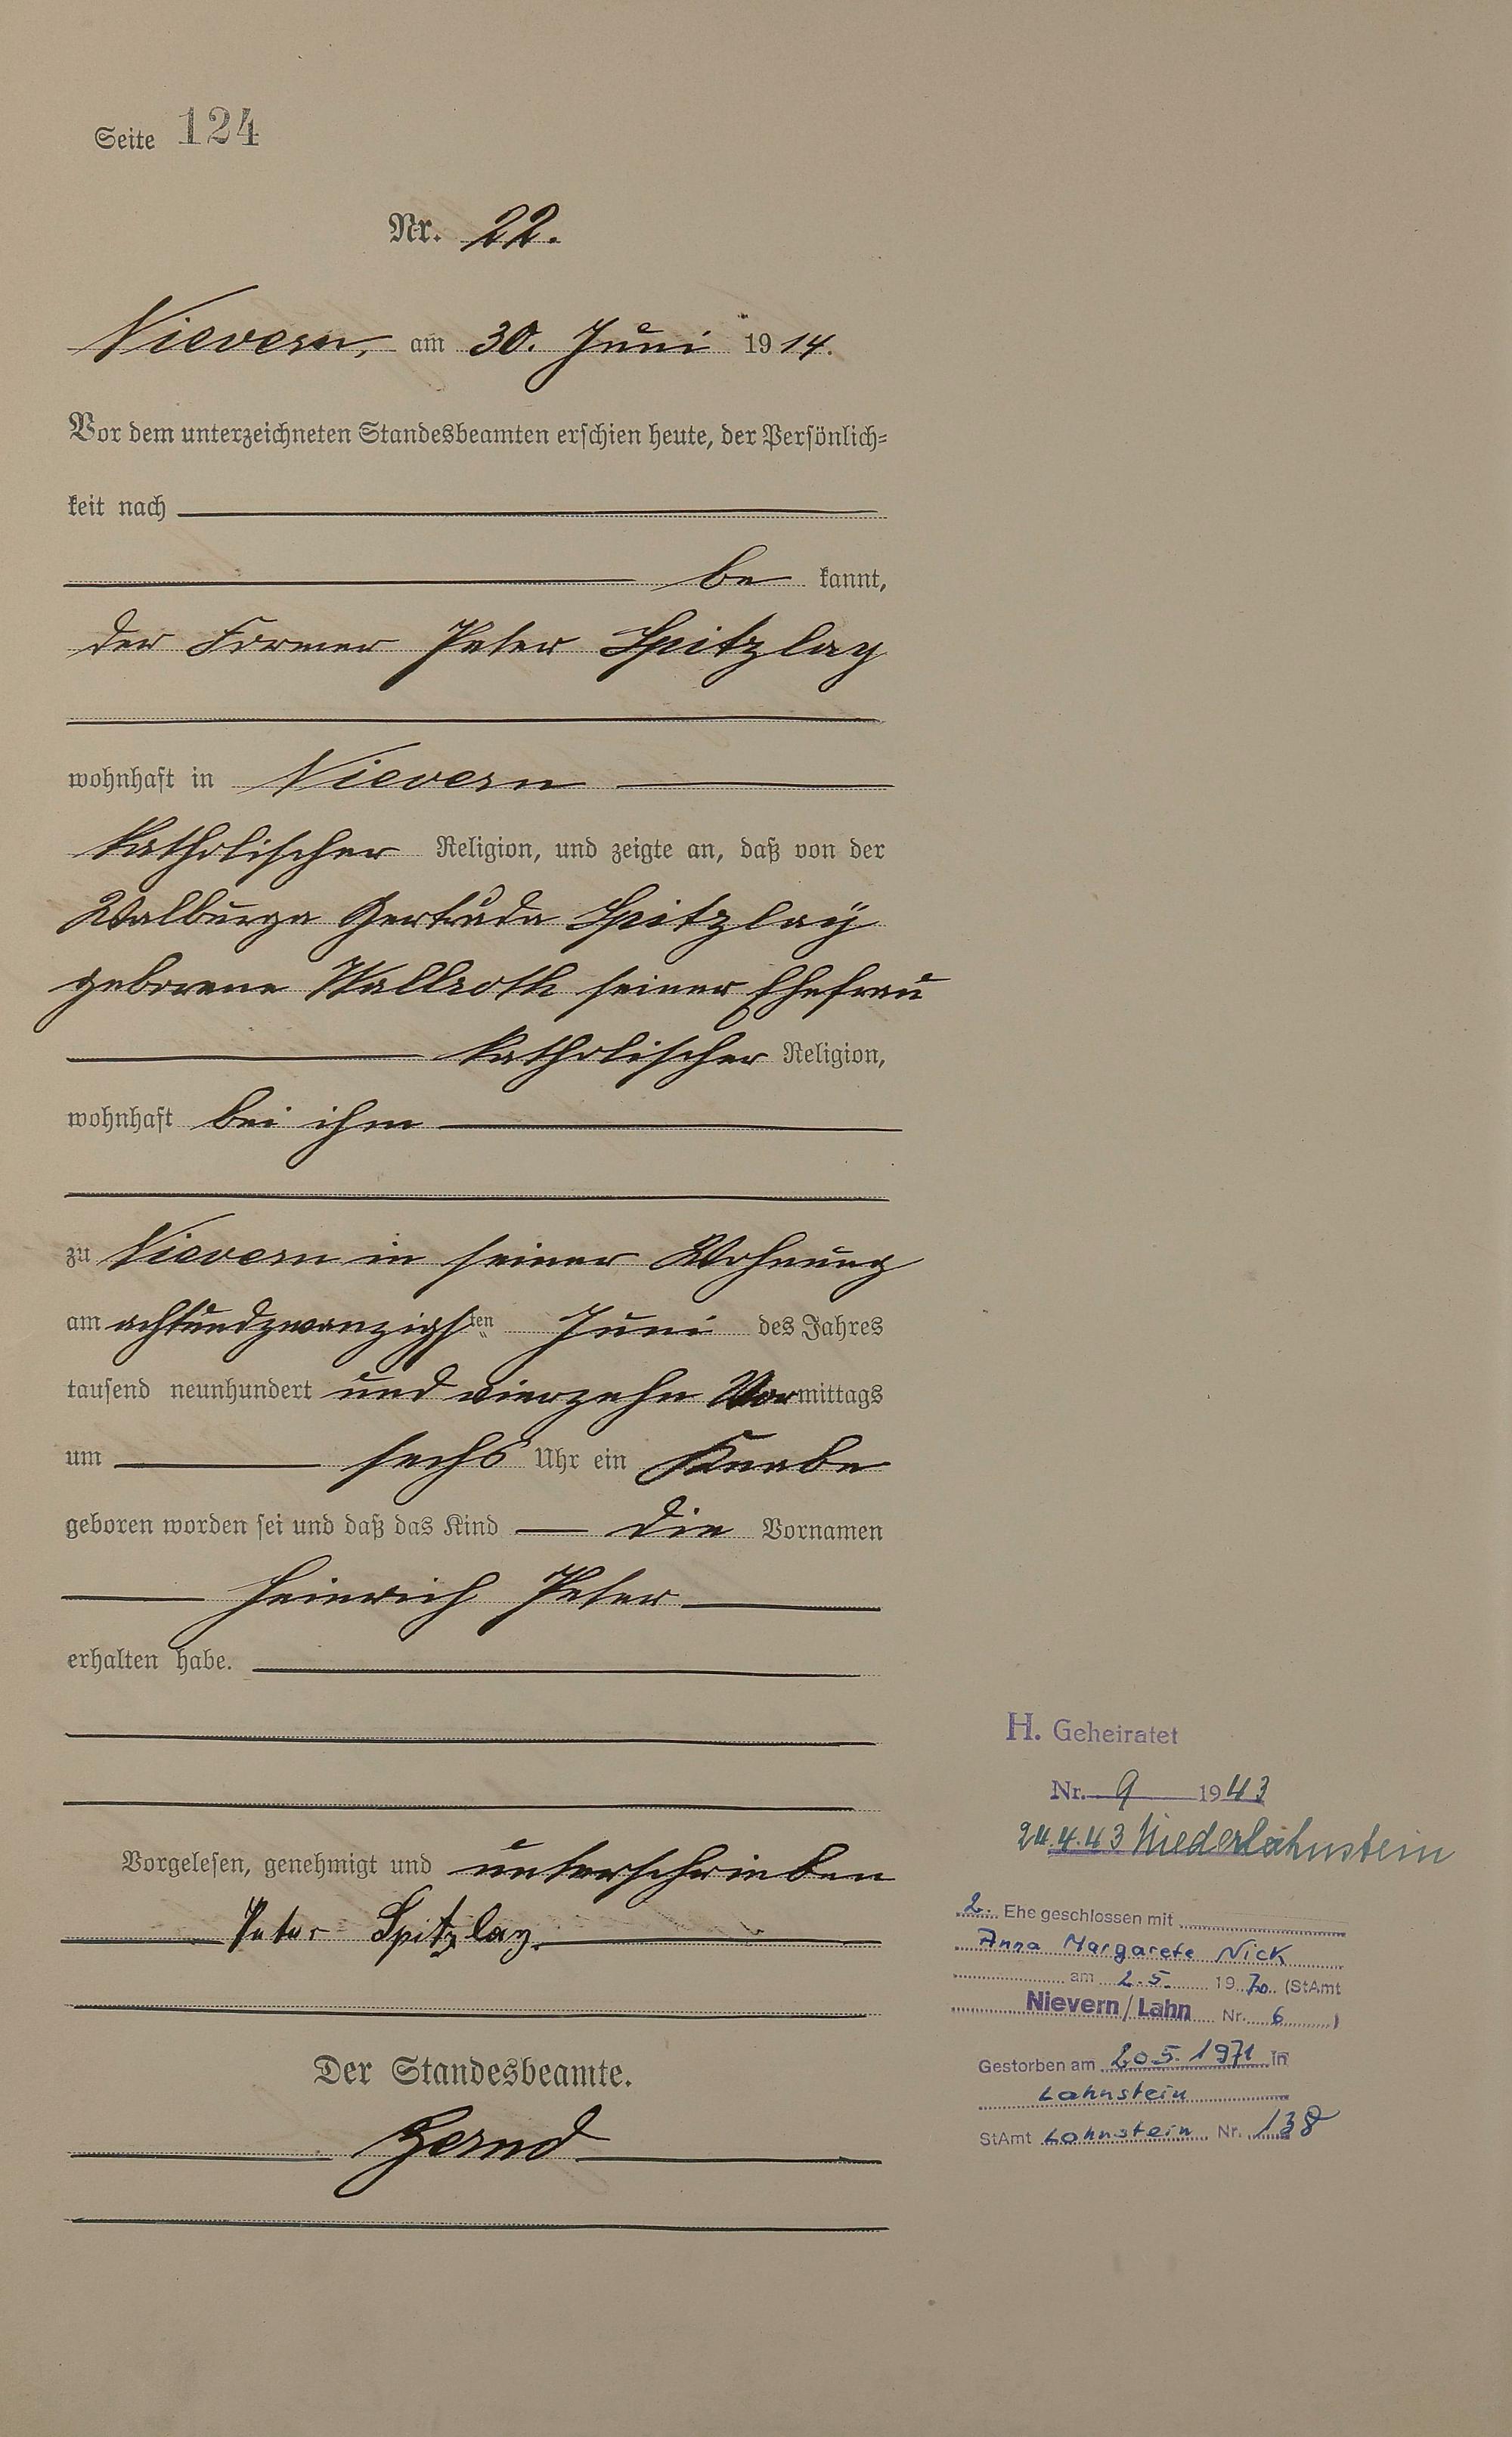 Seite 124
Nr. 22.
Nievern, am 30. Juni 1914.
Vor dem unterzeichneten Standesbeamten erschien heute, der Persönlich=
keit nach
be kannt,
der Former Peter Spitzlay
wohnhaft in Nievern
katholischer Religion, und zeigte an, daß von der
Walburga Gertruda Spitzlaÿ
geborene Wallroth seiner Ehefrau
katholischer Religion,
wohnhaft bei ihm
zu Nievern in seiner Wohnung
am achtundzwanzigsten Juni des Jahres
tausend neunhundert und vierzehn Vormittags
um sechs Uhr ein Knabe
geboren worden sei und daß das Kind die Vornamen
Heinrich Peter
erhalten habe.
Vorgelesen, genehmigt und unterschrieben
Peter Spitzlay.
Der Standesbeamte.
H. Geheiratet
Nr. 9 1943
24.4.43 Niederlahnstein
2. Ehe geschlossen mit
Anna Margarete Nick
am 2.5. 1970 (StAmt
Nievern/Lahn Nr. 6 )
Gestorben am 20.5.1971 in
Lahnstein
StAmt Lahnstein Nr. 138